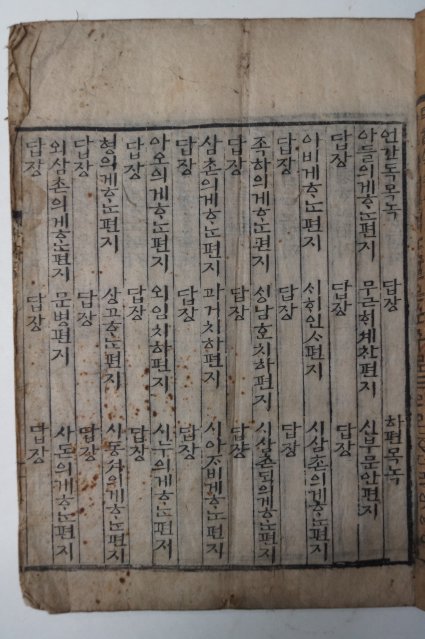 언간독목녹 답장 하편목녹
아들의게ᄒᆞᄂᆞᆫ편지 무근ᄒᆡ셰찬편지 신부문안편지
답장 답장 답장
아비게ᄒᆞᄂᆞᆫ편지 시하인ᄉᆞ편지 시삼촌의게ᄒᆞᄂᆞᆫ편지
답장 답장 답장
족하의게ᄒᆞᄂᆞᆫ편지 ᄉᆡᆼ남ᄒᆞᆫᄃᆡ치하편지
답장 답장 답장
삼촌의게ᄒᆞᄂᆞᆫ편지 과거치하편지 시아ᄌᆞ비게ᄒᆞᄂᆞᆫ편지
답장 답장 답장
아오의게ᄒᆞᄂᆞᆫ편지 외임치하편지 시누의게ᄒᆞᄂᆞᆫ편지
답장 답장 답장
형의게ᄒᆞᄂᆞᆫ편지 상고ᄒᆞᄂᆞᆫ편지
답장 답장 답장
외삼촌의게ᄒᆞᄂᆞᆫ편지 문병편지 사돈의게ᄒᆞᄂᆞᆫ편지
답장 답장 답장